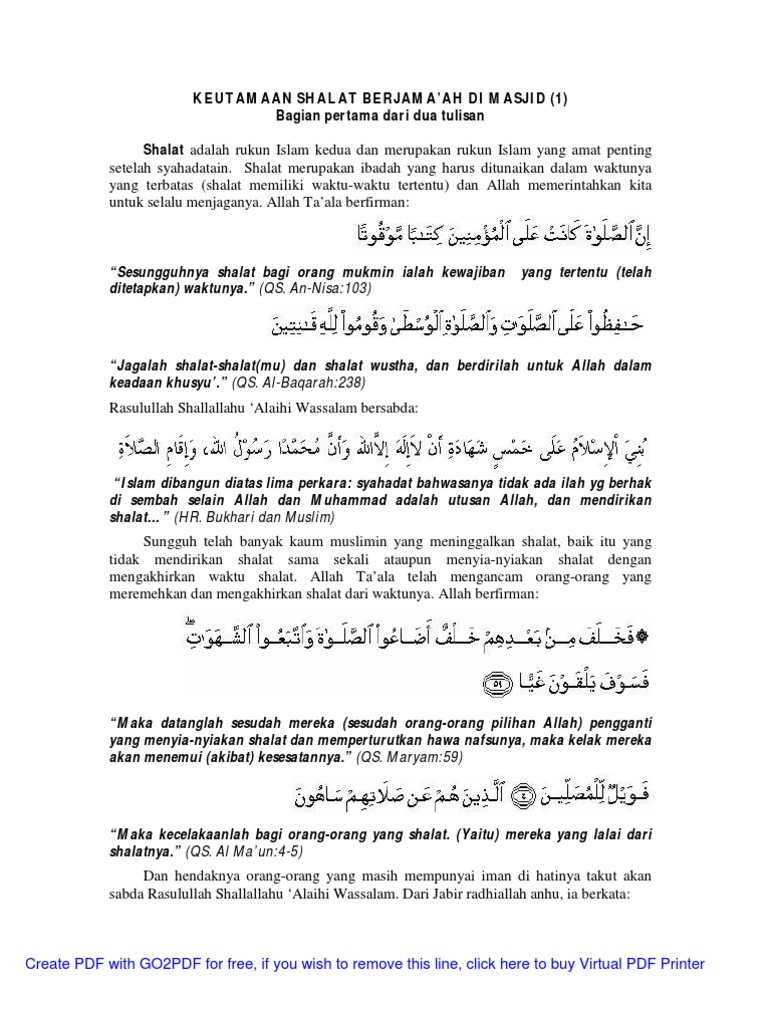 KEUTAMAAN SHALAT BERJAMA’AH DI MASJID (1)
Bagian pertama dari dua tulisan
Shalat adalah rukun Islam kedua dan merupakan rukun Islam yang amat penting
setelah syahadatain. Shalat merupakan ibadah yang harus ditunaikan dalam waktunya
yang terbatas (shalat memiliki waktu-waktu tertentu) dan Allah memerintahkan kita
untuk selalu menjaganya. Allah Ta’ala berfirman:
إِنَّ ٱلصَّلَوٰةَ كَانَتْ عَلَى ٱلْمُؤْمِنِينَ كِتَـٰبًا مَّوْقُوتًا
“Sesungguhnya shalat bagi orang mukmin ialah kewajiban yang tertentu (telah
ditetapkan) waktunya.” (QS. An-Nisa:103)
حَـٰفِظُوا۟ عَلَى ٱلصَّلَوَٰتِ وَٱلصَّلَوٰةِ ٱلْوُسْطَىٰ وَقُومُوا۟ لِلَّهِ قَـٰنِتِينَ
“Jagalah shalat-shalat(mu) dan shalat wustha, dan berdirilah untuk Allah dalam
keadaan khusyu’.” (QS. Al-Baqarah:238)
Rasulullah Shallallahu ‘Alaihi Wassalam bersabda:
بُنِيَ اْلإِسْلاَمُ عَلَى خَمْسٍ شَهَادَةِ أَنْ لاَإِلَهَ إِلاَّالله وَأَنَّ مُحَمَّدًا رَسُوْلُ الله، وَإِقَامِ الصَّلاَةِ
“Islam dibangun diatas lima perkara: syahadat bahwasanya tidak ada ilah yg berhak
di sembah selain Allah dan Muhammad adalah utusan Allah, dan mendirikan
shalat…” (HR. Bukhari dan Muslim)
Sungguh telah banyak kaum muslimin yang meninggalkan shalat, baik itu yang
tidak mendirikan shalat sama sekali ataupun menyia-nyiakan shalat dengan
mengakhirkan waktu shalat. Allah Ta’ala telah mengancam orang-orang yang
meremehkan dan mengakhirkan shalat dari waktunya. Allah berfirman:
۞ فَخَلَفَ مِنۢ بَعْدِهِمْ خَلْفٌ أَضَاعُوا۟ ٱلصَّلَوٰةَ وَٱتَّبَعُوا۟ ٱلشَّهَوَٰتِ ۖ
فَسَوْفَ يَلْقَوْنَ غَيًّا ٥٩
“Maka datanglah sesudah mereka (sesudah orang-orang pilihan Allah) pengganti
yang menyia-nyiakan shalat dan memperturutkan hawa nafsunya, maka kelak mereka
akan menemui (akibat) kesesatannya.” (QS. Maryam:59)
فَوَيْلٌ لِّلْمُصَلِّينَ ٤ ٱلَّذِينَ هُمْ عَن صَلَاتِهِمْ سَاهُونَ
“Maka kecelakaanlah bagi orang-orang yang shalat. (Yaitu) mereka yang lalai dari
shalatnya.” (QS. Al Ma’un:4-5)
Dan hendaknya orang-orang yang masih mempunyai iman di hatinya takut akan
sabda Rasulullah Shallallahu ‘Alaihi Wassalam. Dari Jabir radhiallah anhu, ia berkata:
Create PDF with GO2PDF for free, if you wish to remove this line, click here to buy Virtual PDF Printer